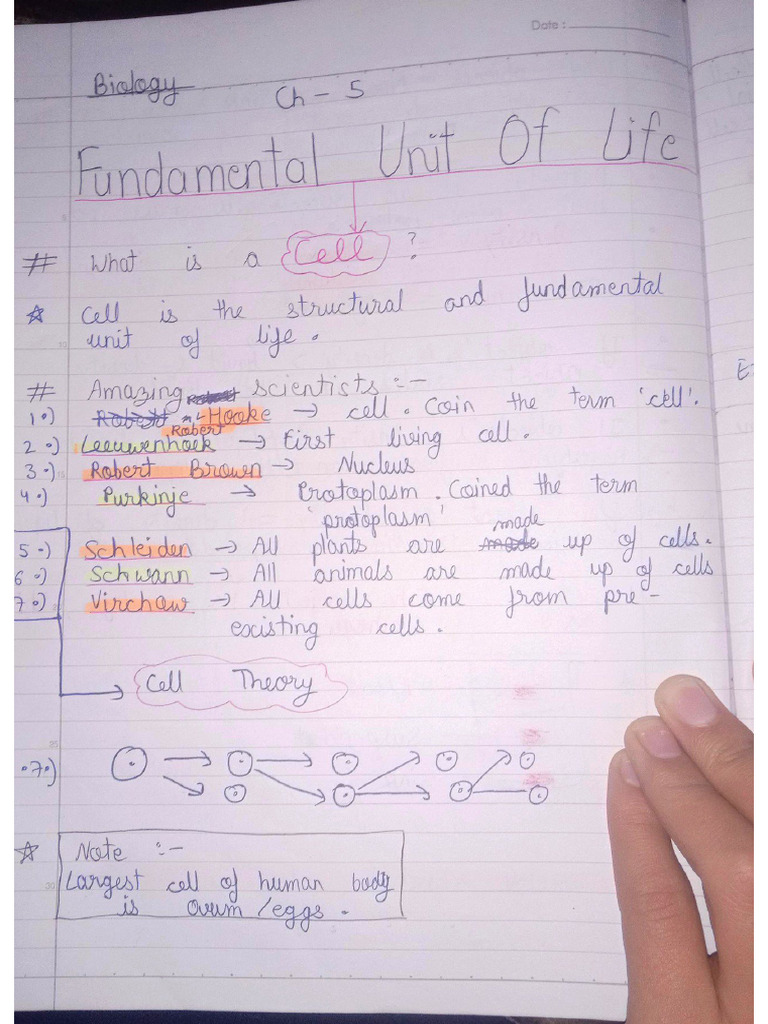 Date :
Biology
Ch - 5
Fundamental Unit Of Life
# What is a Cell ?
☆ Cell is the structural and fundamental
unit of life .
# Amazing scientists :-
1.) Robert Hooke → cell . Coin the term 'cell'.
2.) Leeuwenhoek → First living cell .
3.) Robert Brown → Nucleus
4.) Purkinje → Protoplasm . Coined the term
'protoplasm'
5.) Schleiden → All plants are made up of cells.
6.) Schwann → All animals are made up of cells
7.) Virchaw → All cells come from pre-
existing cells .
Cell Theory
.7.)
☆ Note :-
Largest cell of human body
is ovum /eggs .